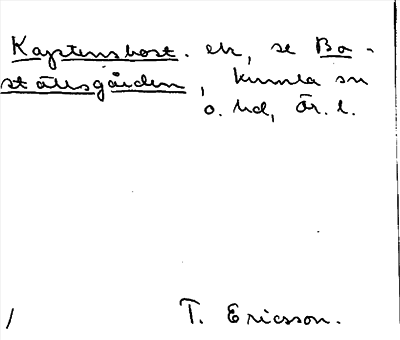 Kaptensbost. elr, se Bo-
ställsgården, Kumla sn
o. hd, Är. l.
T. Ericsson.